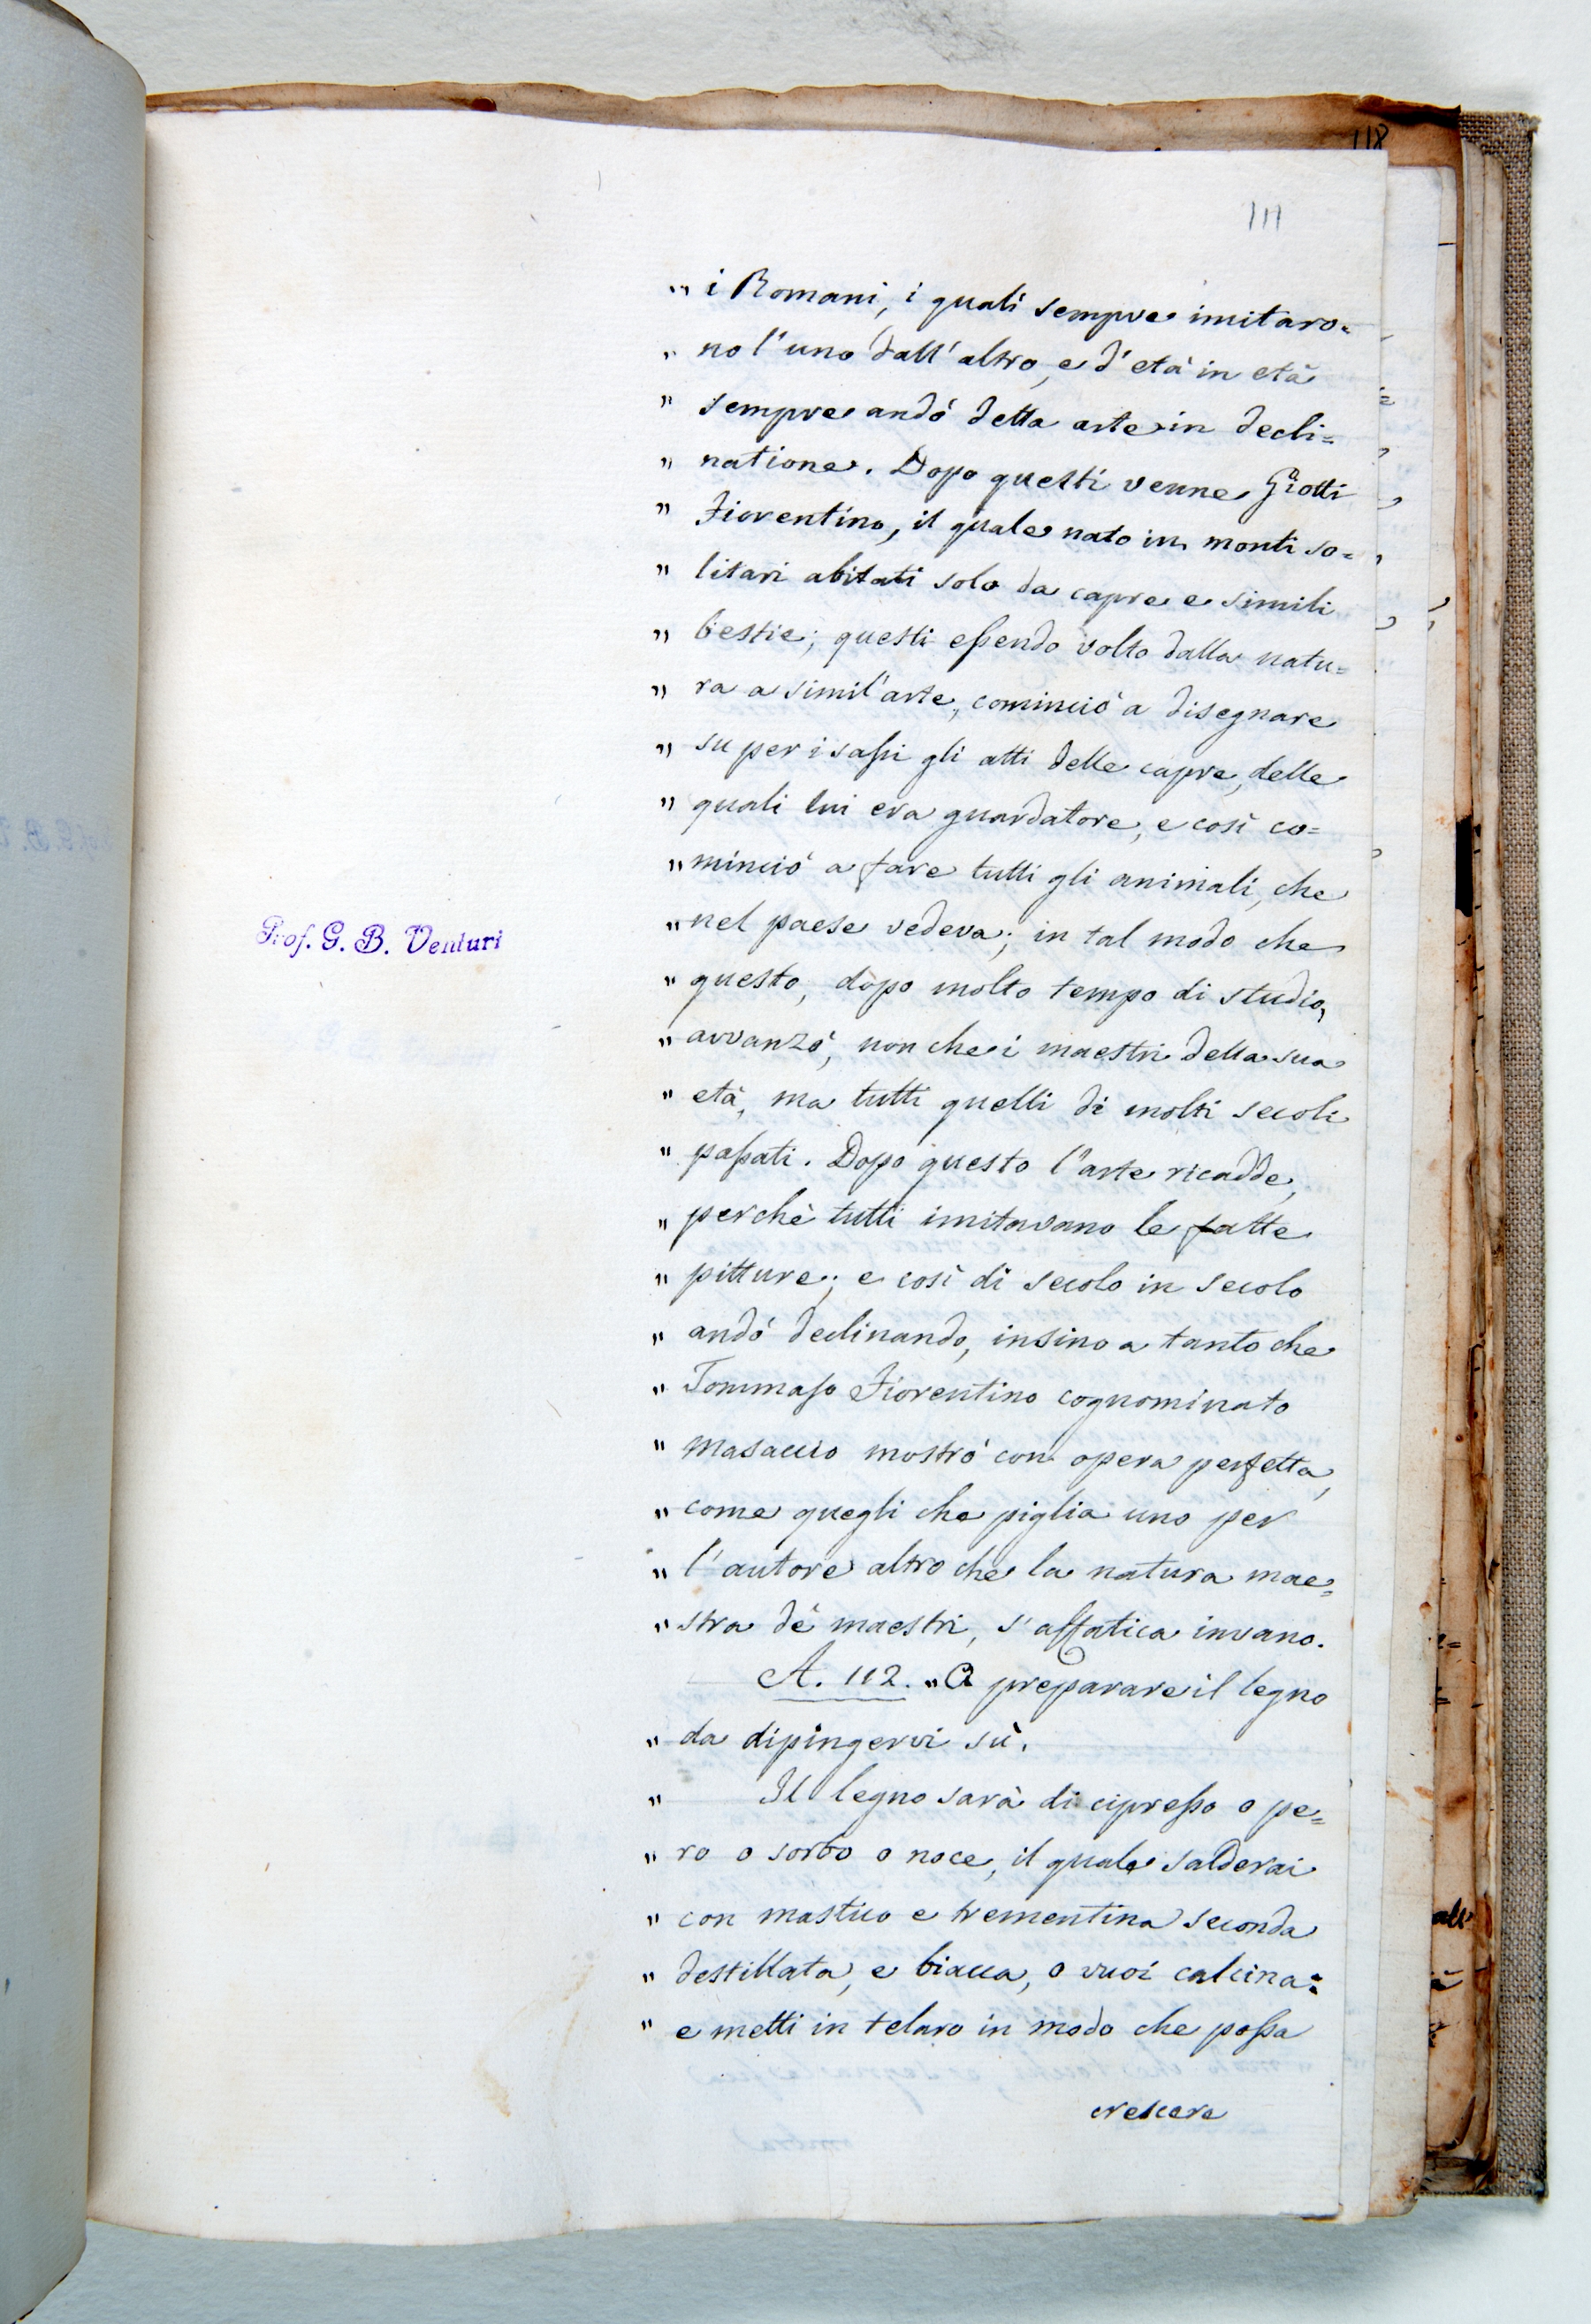 118
111
" i Romani, i quali sempre imitaro=
" no l'uno dall'altro, e d'età in età
" sempre andò detta arte in decli=
" natione. Dopo questi venne Giotti
" Fiorentino, il quale nato in monti so=
" litari abitati solo da capre e simili
" bestie; questi eſsendo volto dalla natu=
" ra a simil'arte, cominciò a disegnare
" su per i saſsi gli atti delle capre, delle
" quali lui era guardatore, e così co=
" minciò a fare tutti gli animali, che
" nel paese vedeva; in tal modo che
Prof. G. B. Venturi
" questo, dopo molto tempo di studio,
" avvanzò, non che i maestri della sua
" età, ma tutti quelli di molti secoli
" paſsati. Dopo questo l'arte ricadde,
" perchè tutti imitavano le fatte
" pitture; e così di secolo in secolo
" andò declinando, insino a tanto che
" Tommaſo Fiorentino cognominato
" Masaccio mostrò con opera perfetta,
" come quegli che piglia uno per
" l'autore altro che la natura mae=
" stra de' maestri, s'affatica invano.
A. 112. " A preparare il legno
" da dipingervi sù.
" Il legno sarà di cipreſso o pe=
" ro o sorbo o noce, il quale salderai
" con mastico e trementina seconda
" destillata, e biacca, o vuoi calcina:
" e metti in telaro in modo che poſsa
crescere